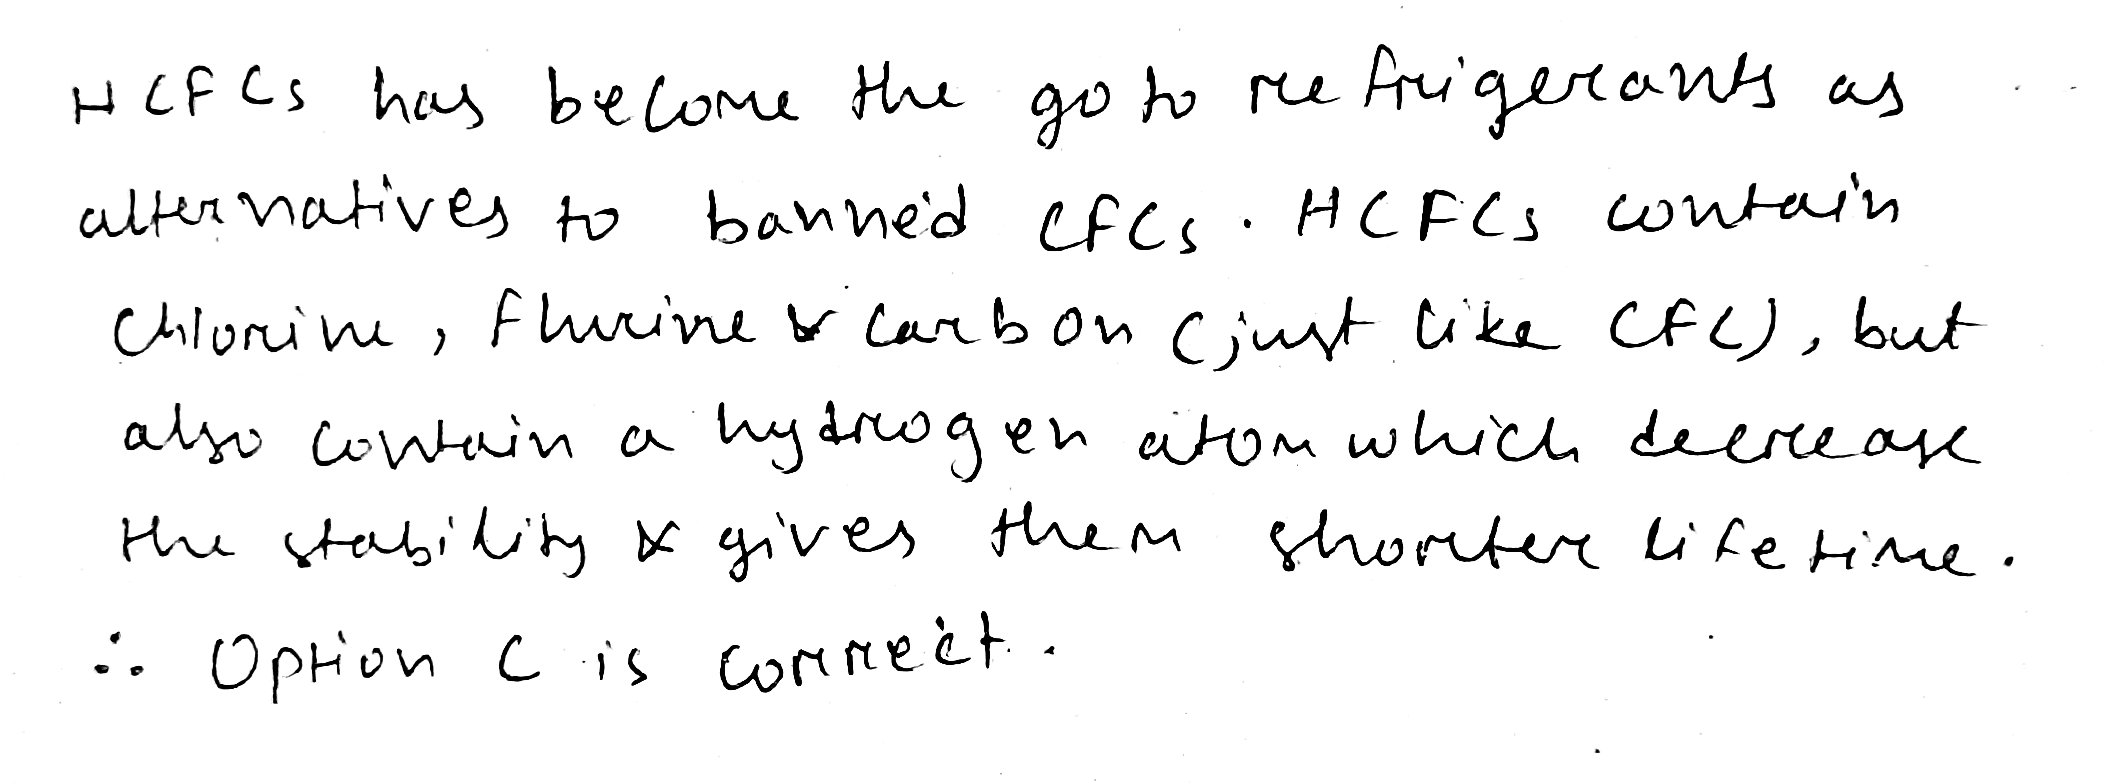 HCFCs has become the go to refrigerants as
alternatives to banned CFCs. HCFCs contain
Chlorine, flurine & carbon (just like CFC), but
also contain a hydrogen atom which decrease
the stability & gives them shorter life time.
∴ Option C is correct.